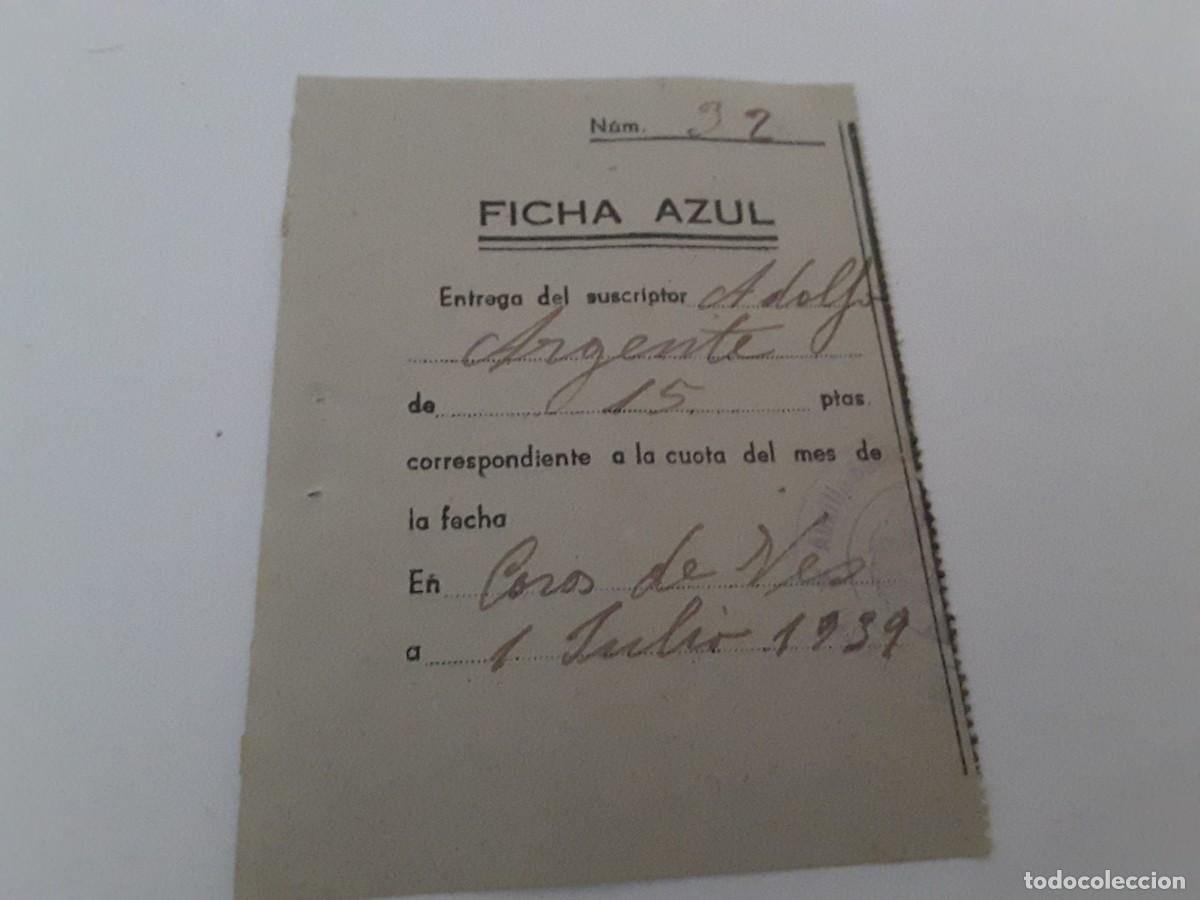 Núm. 32
FICHA AZUL
Entrega del suscriptor Adolfo
Argente
de 15 ptas.
correspondiente a la cuota del mes de
la fecha
En Coros de Ves
a 1 Julio 1939
todocoleccion